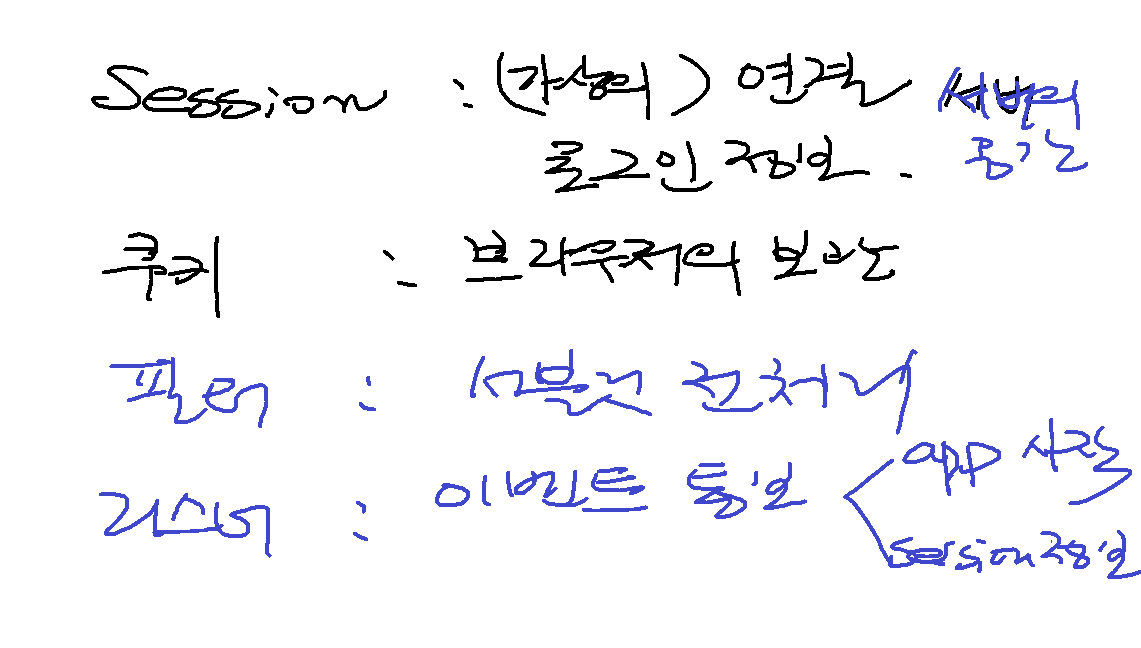 Session : (가상의) 연결 서버의
로그인 정보. 공간
쿠키 : 브라우저의 보관
필터 : 서블릿 전처리
리스너 : 이벤트 통보
app 시작
session 정보